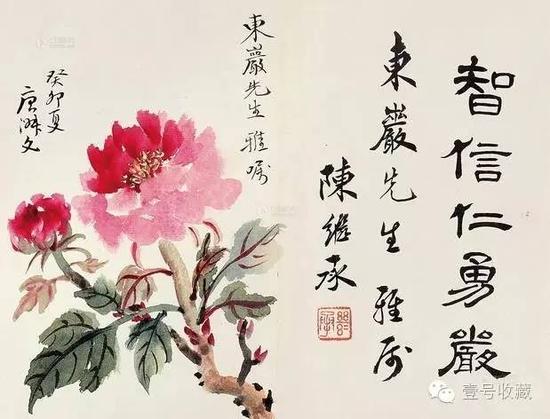 智信仁勇嚴
東巖先生雅属
陳繼承
東巖先生雅嘱
癸卯夏
壹号收藏